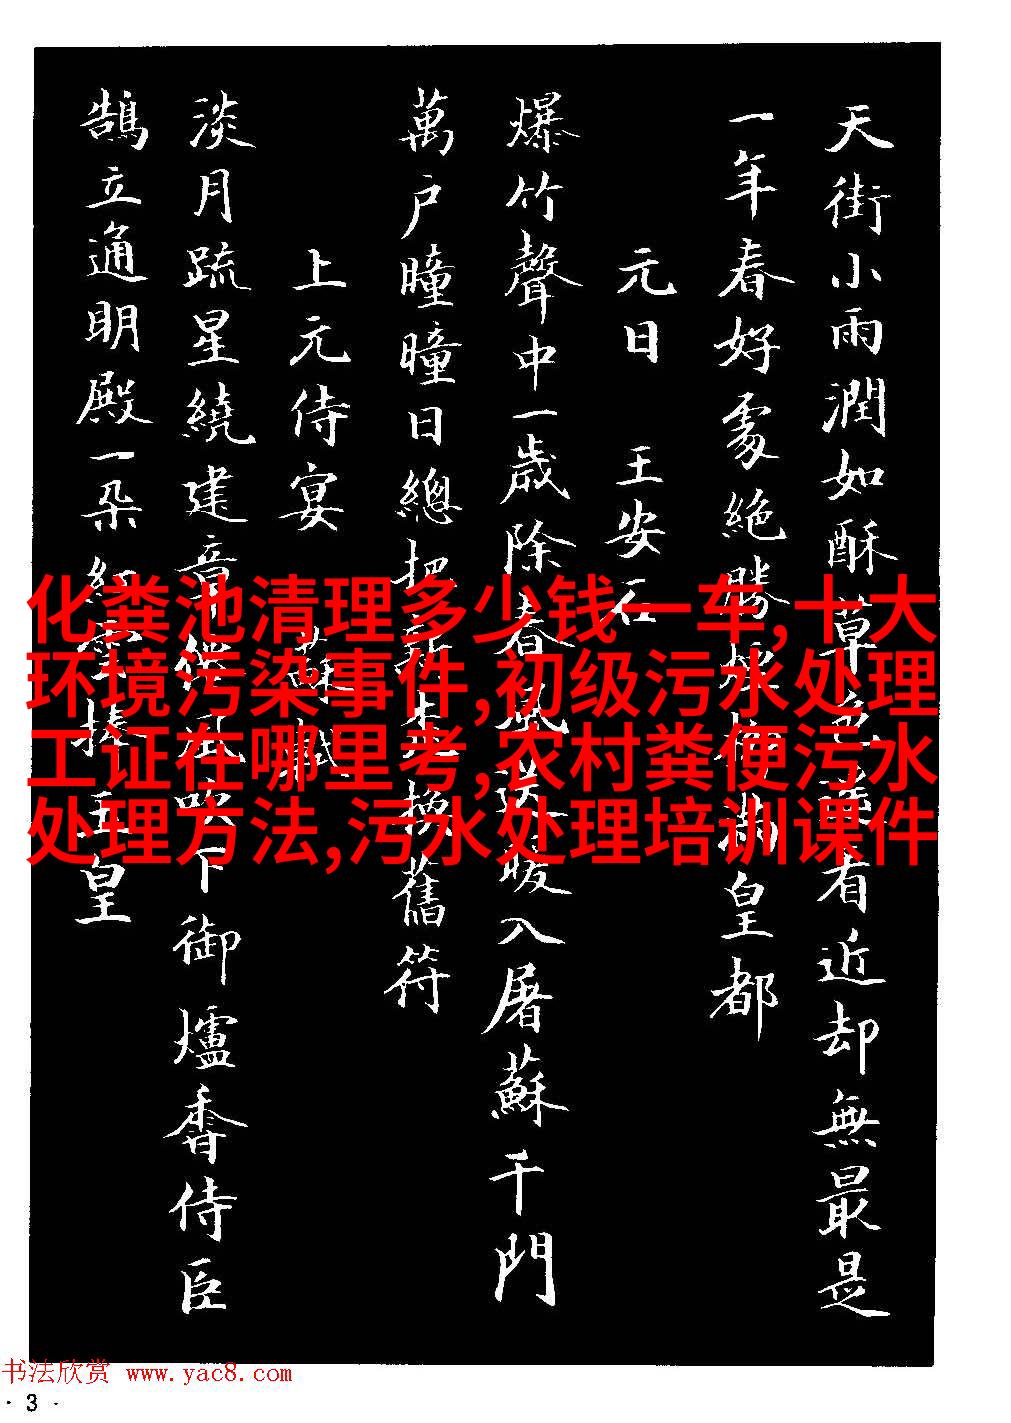 天街小雨潤如酥草色遙看近却無最是
一年春好處絶勝烟柳滿皇都
元日 王安石
爆竹聲中一歲除春風送暖入屠蘇千門
萬户曈曈日總把新桃換舊符
上元侍宴 蘇軾
淡月疏星繞建章仙風吹下御爐香侍臣
鵠立通明殿一朵紅雲捧玉皇
化粪池清理多少钱一车,十大
环境污染事件,初级污水处理
工证在哪里考,农村粪便污水
处理方法,污水处理培训课件
书法欣赏 www.yac8.com
· 3 ·